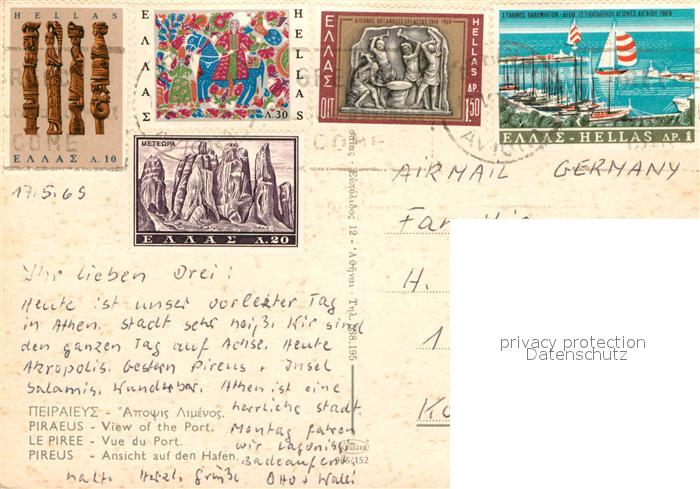 HELLAS
ΕΛΛΑΣ Λ.10
ΕΛΛΑΣ
HELLAS
Λ.30
ΔΙΕΘΝΗΣ ΟΡΓΑΝΩΣΙΣ ΕΡΓΑΣΙΑΣ 1919 1969
ΕΛΛΑΣ
HELLAS
ΔΡ. 1.50
ΕΛΛΑΣ-HELLAS ΔΡ.1
ΜΕΤΕΩΡΑ
ΕΛΛΑΣ Λ.20
17.5.69
AIRMAIL GERMANY
Ihr lieben Drei!
Heute ist unser vorletzter Tag
in Athen. Stadt sehr heiß. Wir sind
den ganzen Tag auf Achse. Heute
Akropolis. Gestern Pireus + Insel
Salamis. Wunderbar. Athen ist eine
herrliche Stadt.
Montag fahren
wir
Badeaufent
halt. Herzl. Grüße Otto +
ΠΕΙΡΑΙΕΥΣ - Ἄποψις Λιμένος.
PIRAEUS - View of the Port.
LE PIREE - Vue du Port.
PIREUS - Ansicht auf den Hafen.
Εὐπόλιδος 12 - Ἀθῆναι - Τηλ.
KRÜGER
986/152
H.
1
privacy protection
Datenschutz